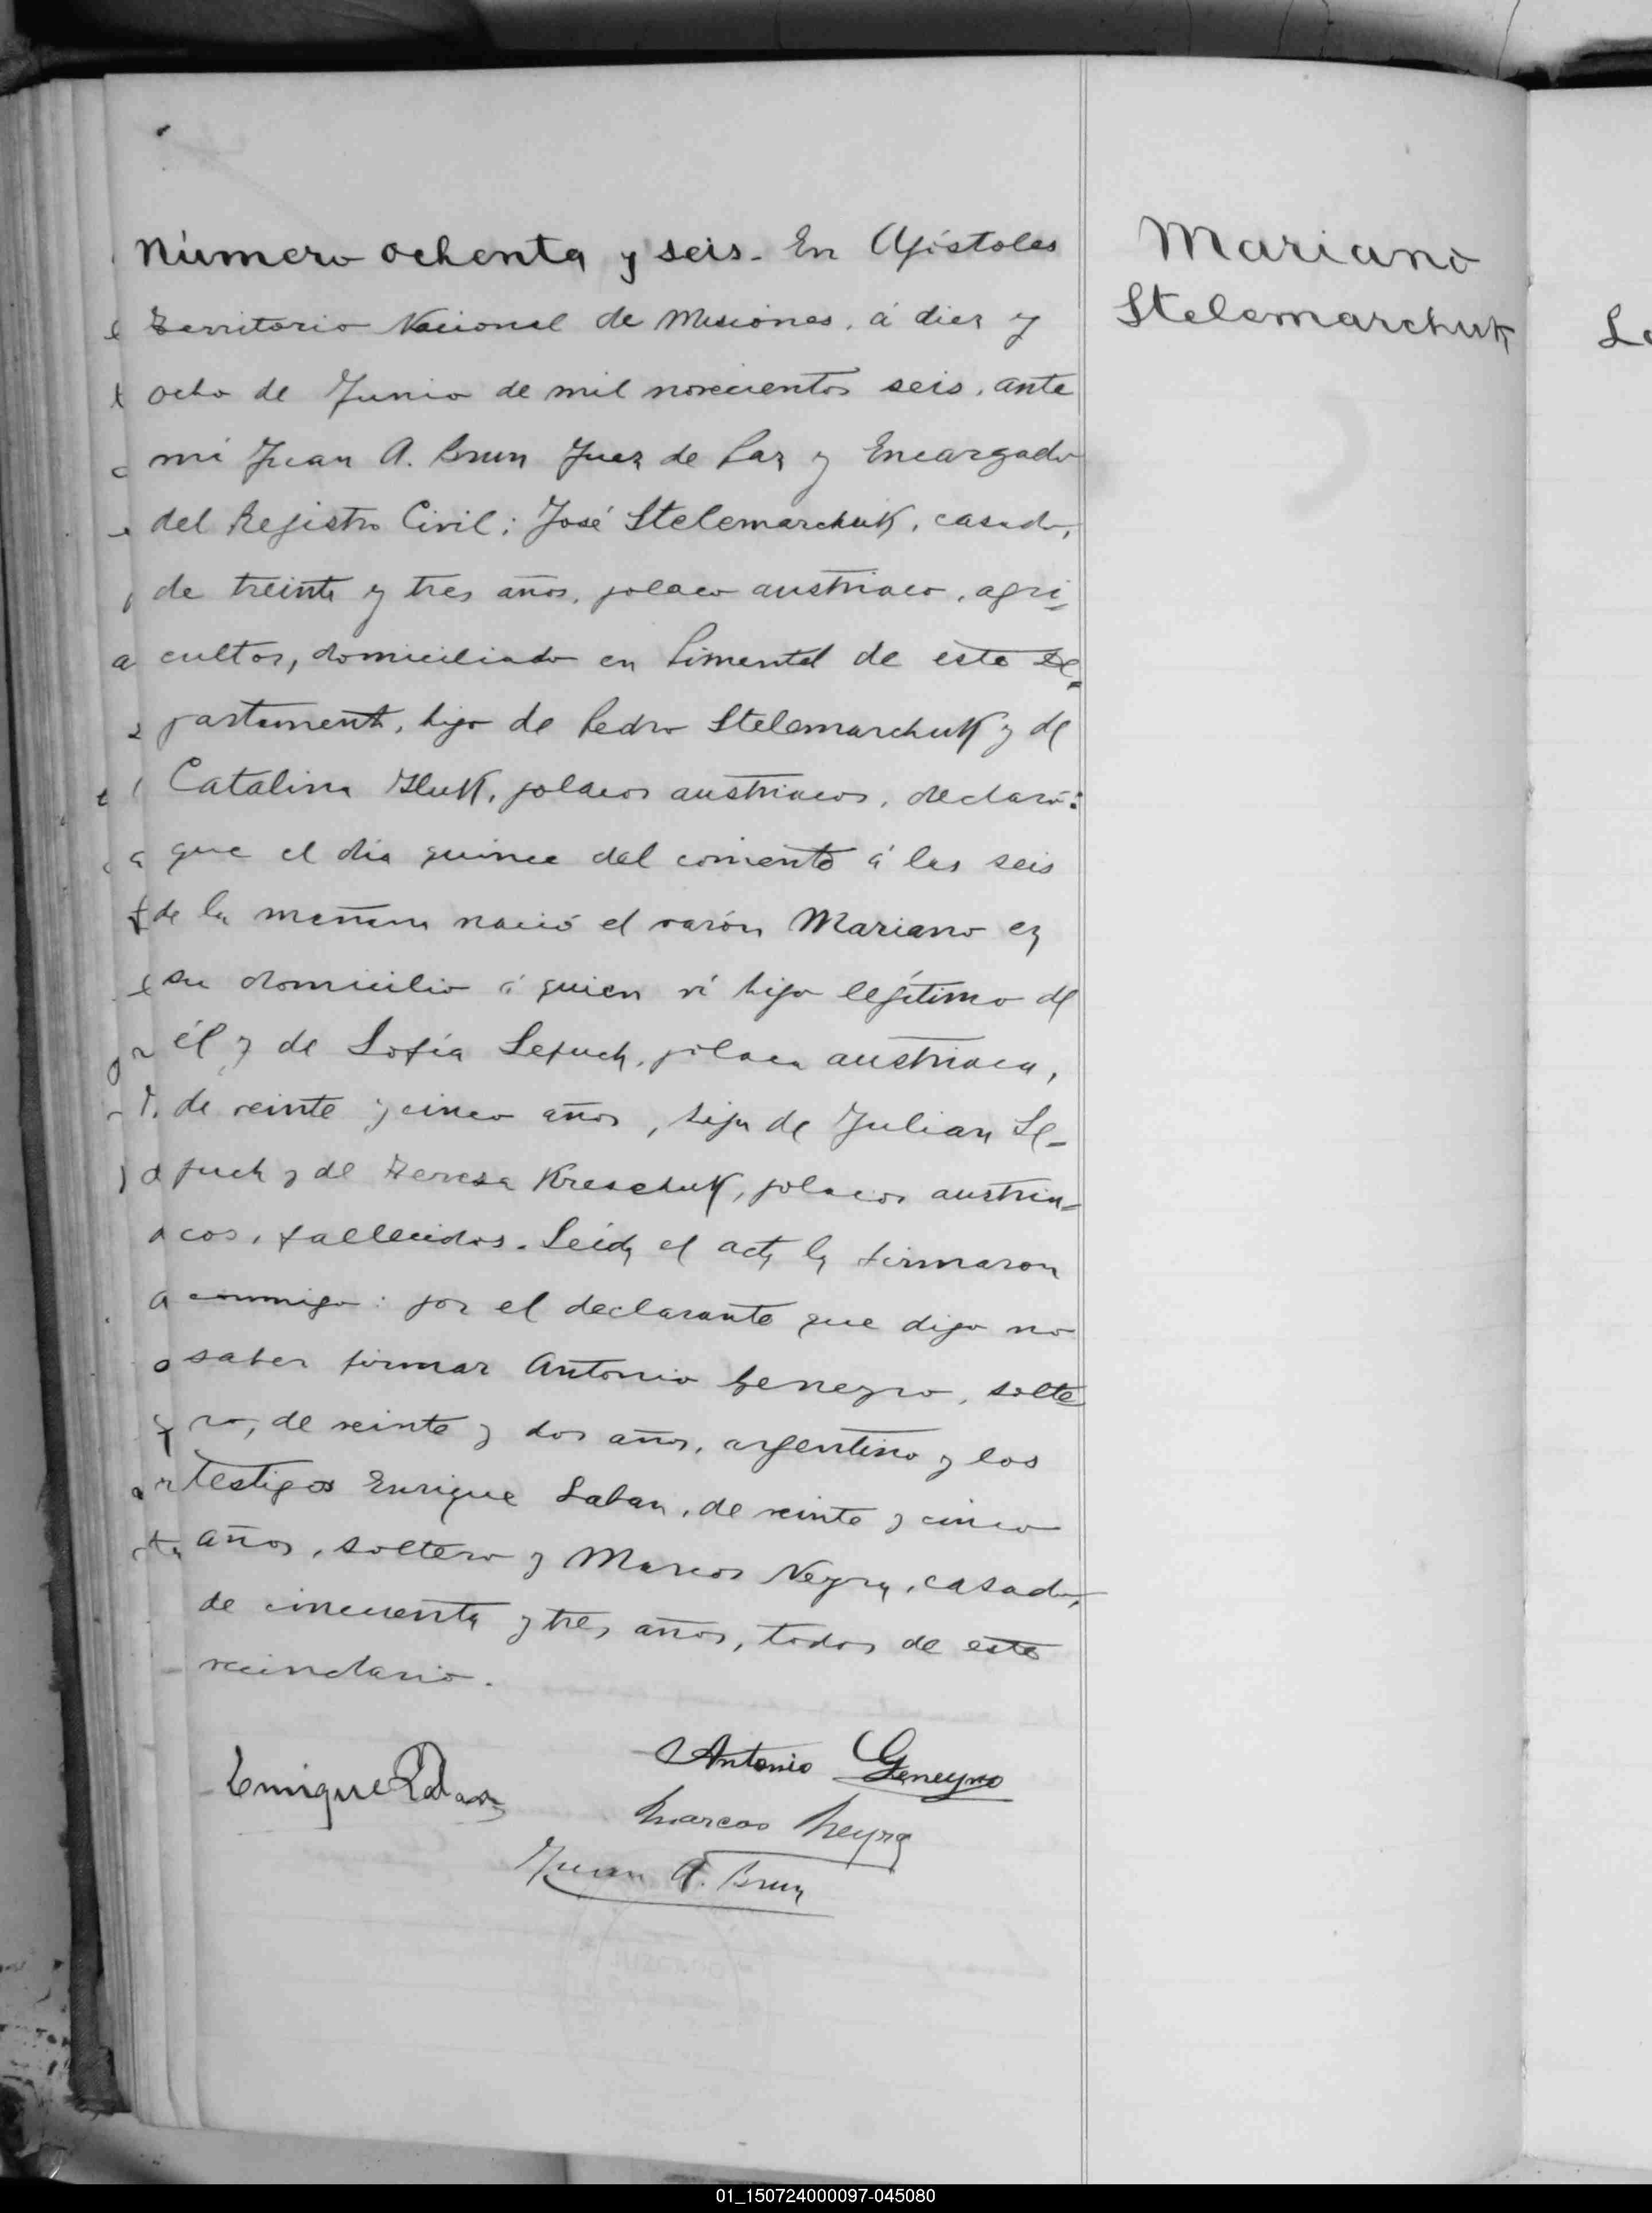 Número ochenta y seis. En Apóstoles
Territorio Nacional de Misiones, á diez y
ocho de Junio de mil novecientos seis, ante
mí Juan A. Brun Juez de Paz y Encargado
del Registro Civil; José Stelemarchuk, casado,
de treinta y tres años, polaco austriaco, agri-
cultor, domiciliado en Pimentel de este De-
partamento, hijo de Pedro Stelemarchuk y de
Catalina Hluk, polacos austriacos, declaró:
que el dia quince del corriente á las seis
de la mañana nació el varón Mariano en
su domicilio á quien ví hijo legítimo de
él y de Sofía Sepuch, polaca austriaca,
de veinte y cinco años, hija de Julian Se-
puch y de Teresa Kreschuk, polacos austria-
cos, fallecidos. Leida el acta la firmaron
conmigo: por el declarante que dijo no
saber firmar Antonio Geneyro, solte
ro, de veinte y dos años, argentino y los
testigos Enrique Laban, de veinte y cinco
años, soltero y Marcos Neyra, casado,
de cincuenta y tres años, todos de este
vecindario.
Antonio Geneyro
Enrique
Marcos Neyra
Juan A. Brun
Mariano
Stelemarchuk
01_150724000097-045080